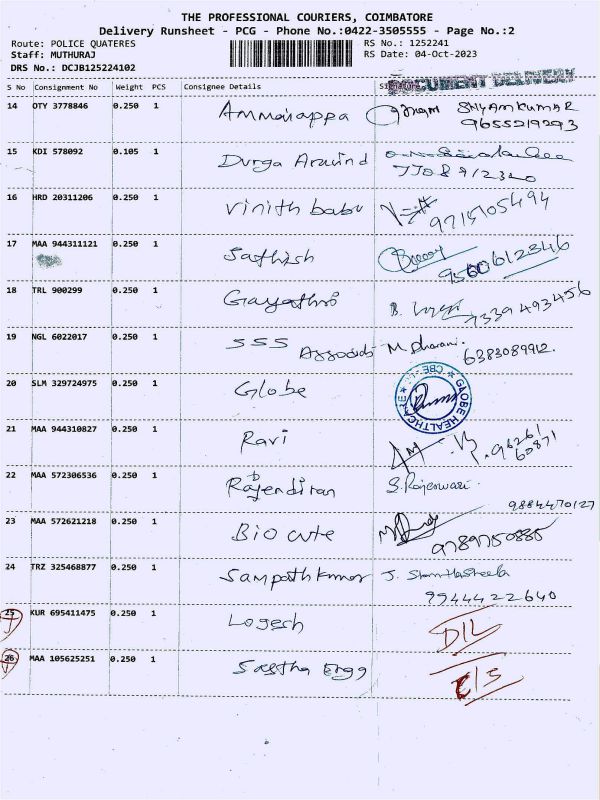 THE PROFESSIONAL COURIERS, COIMBATORE
Delivery Runsheet - PCG - Phone No.:0422-3505555 - Page No.:2
Route: POLICE QUATERES RS No.: 1252241
Staff: MUTHURAJ RS Date: 04-Oct-2023
DRS No.: DCJB125224102
DOCUMENT DELIVERY
S No Consignment No Weight PCS Consignee Details Signature
14 OTY 3778846 0.250 1 Ammaiappa SHYAMKUMAR
9655219293
15 KDI 578092 0.105 1 Durga Aravind
7708912320
16 HRD 20311206 0.250 1 Vinith babu 9715705494
17 MAA 944311121 0.250 1 Sathish 9560612346
18 TRL 900299 0.250 1 Gayathri 7339493456
19 NGL 6022017 0.250 1 SSS Associats M. Dharani.
6383089912.
20 SLM 329724975 0.250 1 Globe
GLOBE HEALTHCARE ★ CBE
21 MAA 944310827 0.250 1 Ravi 96261
60871
22 MAA 572306536 0.250 1 Rajendiran S. Rajeswari.
9884470127
23 MAA 572621218 0.250 1 Bio cute 9789750885
24 TRZ 325468877 0.250 1 Sampathkumar J.
9944422640
25 KUR 695411475 0.250 1 Logesh D/L
26 MAA 105625251 0.250 1 Sastha Engg C/S